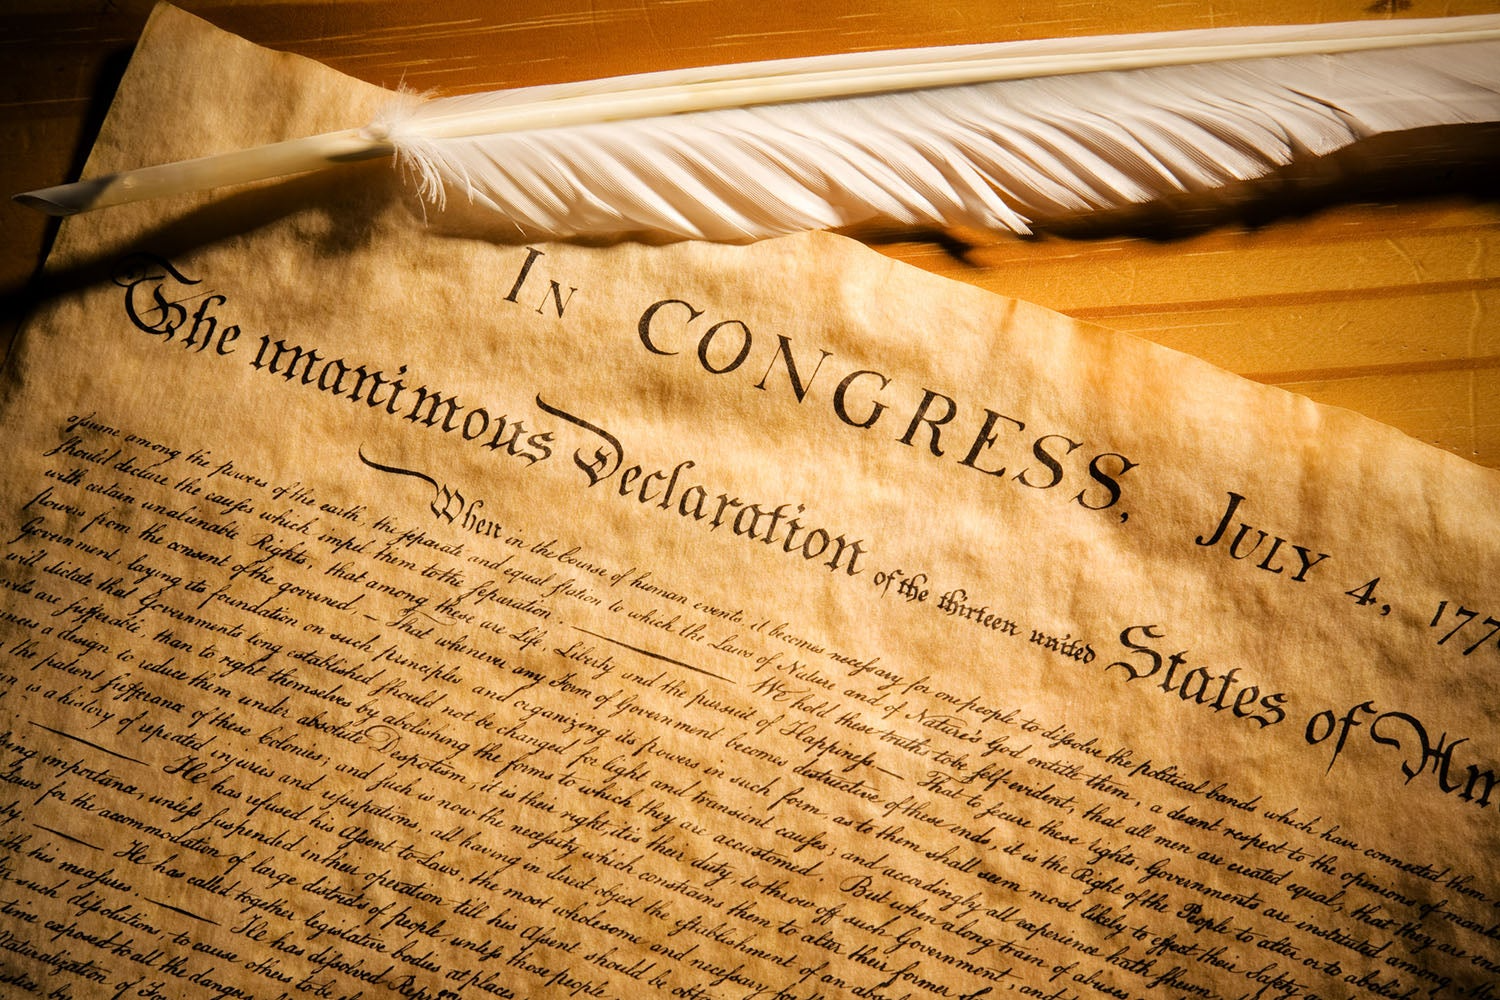 In CONGRESS, July 4, 177
The unanimous Declaration of the thirteen united States of Am
When in the Course of human events, it becomes necessary for one people to dissolve the political bands which have connected them
assume among the powers of the earth, the separate and equal station to which the Laws of Nature and of Nature's God entitle them, a decent respect to the opinions of mank
should declare the causes which impel them to the separation. We hold these truths to be self-evident, that all men are created equal, that they are endo
with certain unalienable Rights, that among these are Life, Liberty and the pursuit of Happiness. — That to secure these rights, Governments are instituted among
powers from the consent of the governed, — That whenever any Form of Government becomes destructive of these ends, it is the Right of the People to alter or to abolish
Government, laying its foundation on such principles and organizing its powers in such form, as to them shall seem most likely to effect their Safety
will dictate that Governments long established should not be changed for light and transient causes; and accordingly all experience hath shewn
are sufferable, than to right themselves by abolishing the forms to which they are accustomed. But when a long train of abuses
a design to reduce them under absolute Despotism, it is their right, it is their duty, to throw off such Government, and
the patient sufferance of these Colonies; and such is now the necessity which constrains them to alter their former
is a history of repeated injuries and usurpations, all having in direct object the establishment of an
He has refused his Assent to Laws, the most wholesome and necessary for
importance, unless suspended in their operation till his Assent should be
Laws for the accommodation of large districts of people, unless those people
He has called together legislative bodies at places
his measures. He has dissolved
such dissolutions, to cause others to be
time exposed to all the dangers
Naturalization of